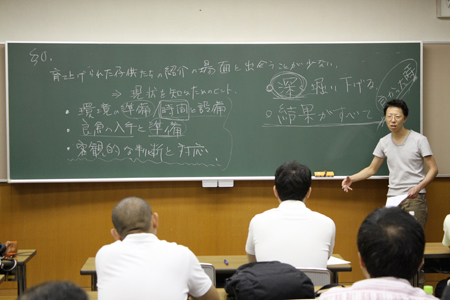 育て上げられた子供たちの紹介の場面と出会うことが少ない。
⇒ 現状を知るためのヒント、
・環境の準備/時間と設備
・の入手と準備
・客観的な判断と対応。
深く掘り下げる
結果がすべて